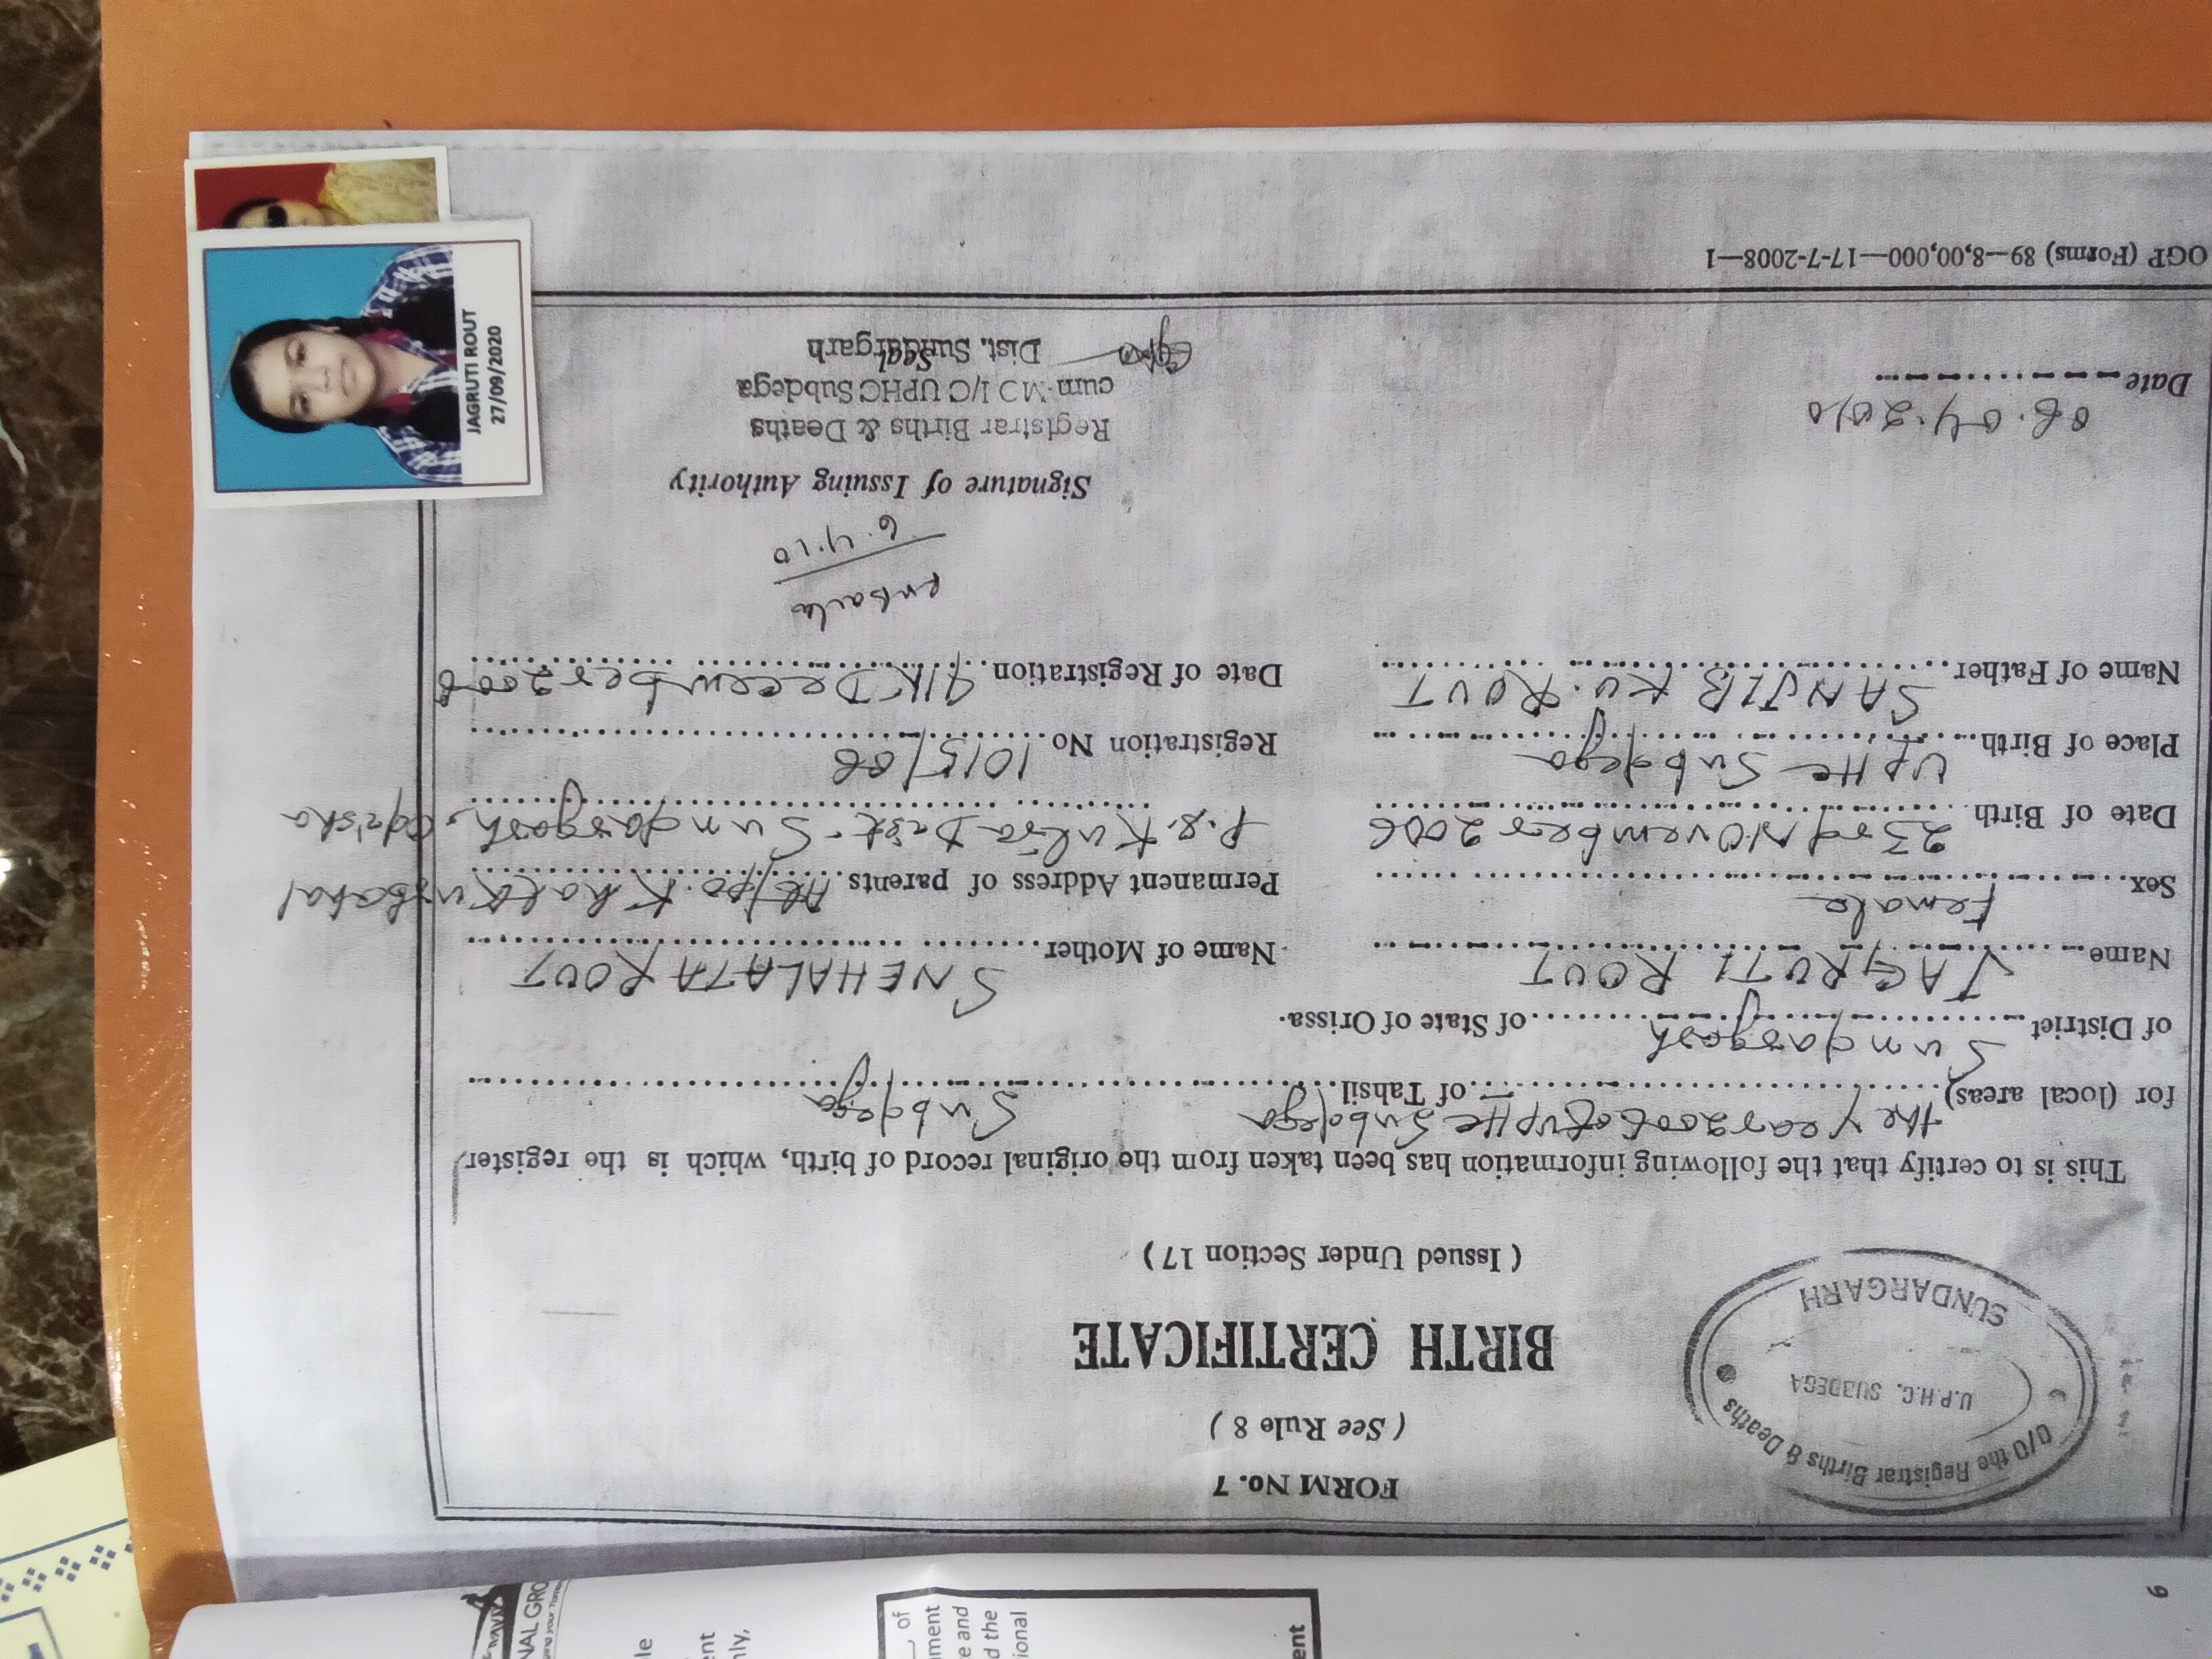 FORM No. 7
( See Rule 8 )
BIRTH CERTIFICATE
( Issued Under Section 17 )
O/O the Registrar Births & Deaths
U.P.H.C. SUBDEGA
SUNDARGARH
This is to certify that the following information has been taken from the original record of birth, which is the register
for (local areas) the year 2006 of UPHC Subdega of Tahsil Subdega
of District Sundargarh of State of Orissa.
Name JAGRUTI ROUT
Name of Mother SNEHALATA ROUT
Sex Female
Permanent Address of parents At/po. Khatkurbahal
P.S. Kulra Dist. Sundargarh, Odisha
Date of Birth 23rd November 2006
Place of Birth UPHC Subdega
Registration No 1015/06
Name of Father SANJIB KU. ROUT
Date of Registration 9th December 2006
6.4.10
Signature of Issuing Authority
Registrar Births & Deaths
cum-MO I/C UPHC Subdega
Dist. Sundargarh
Seal
Date 06.04.2010
OGP (Forms) 89—8,00,000—17-7-2008—1
JAGRUTI ROUT
27/09/2020
of
ment
e and
d the
ional
ent
le
ent
nly,
NAL GRO
9